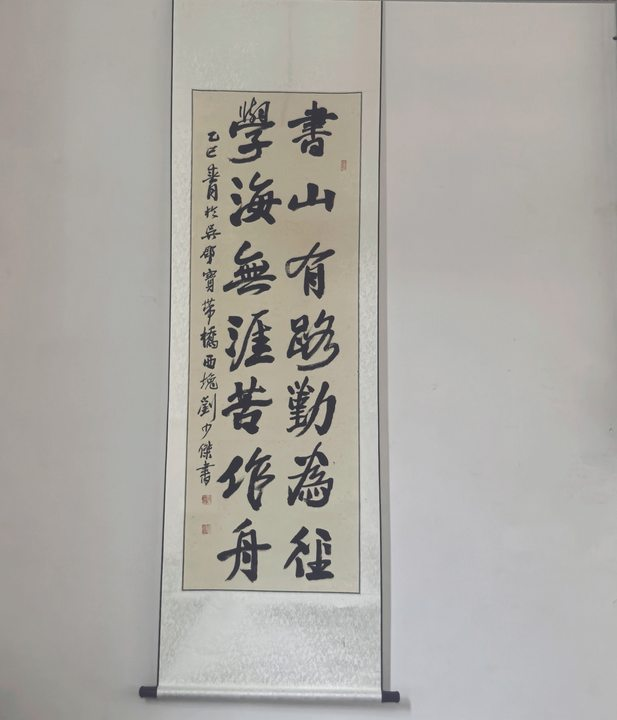 書山有路勤為徑
學海無涯苦作舟
乙巳春月於吳郡寶帶橋西塊劉少傑書